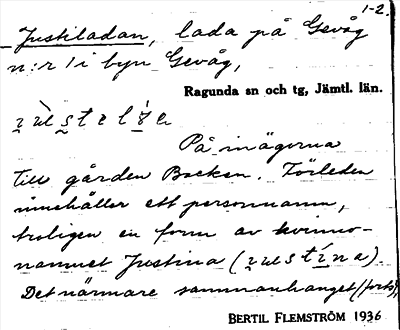 1-2.
Justiladan, lada på Gevåg
n:r 1 i byn Gevåg,
Ragunda sn och tg, Jämtl. län.
På inägorna
till gården Backen. Förleden
innehåller ett personnamn,
troligen en form av kvinno-
namnet Justina
Det närmare sammanhanget (forts),
BERTIL FLEMSTRÖM 1936